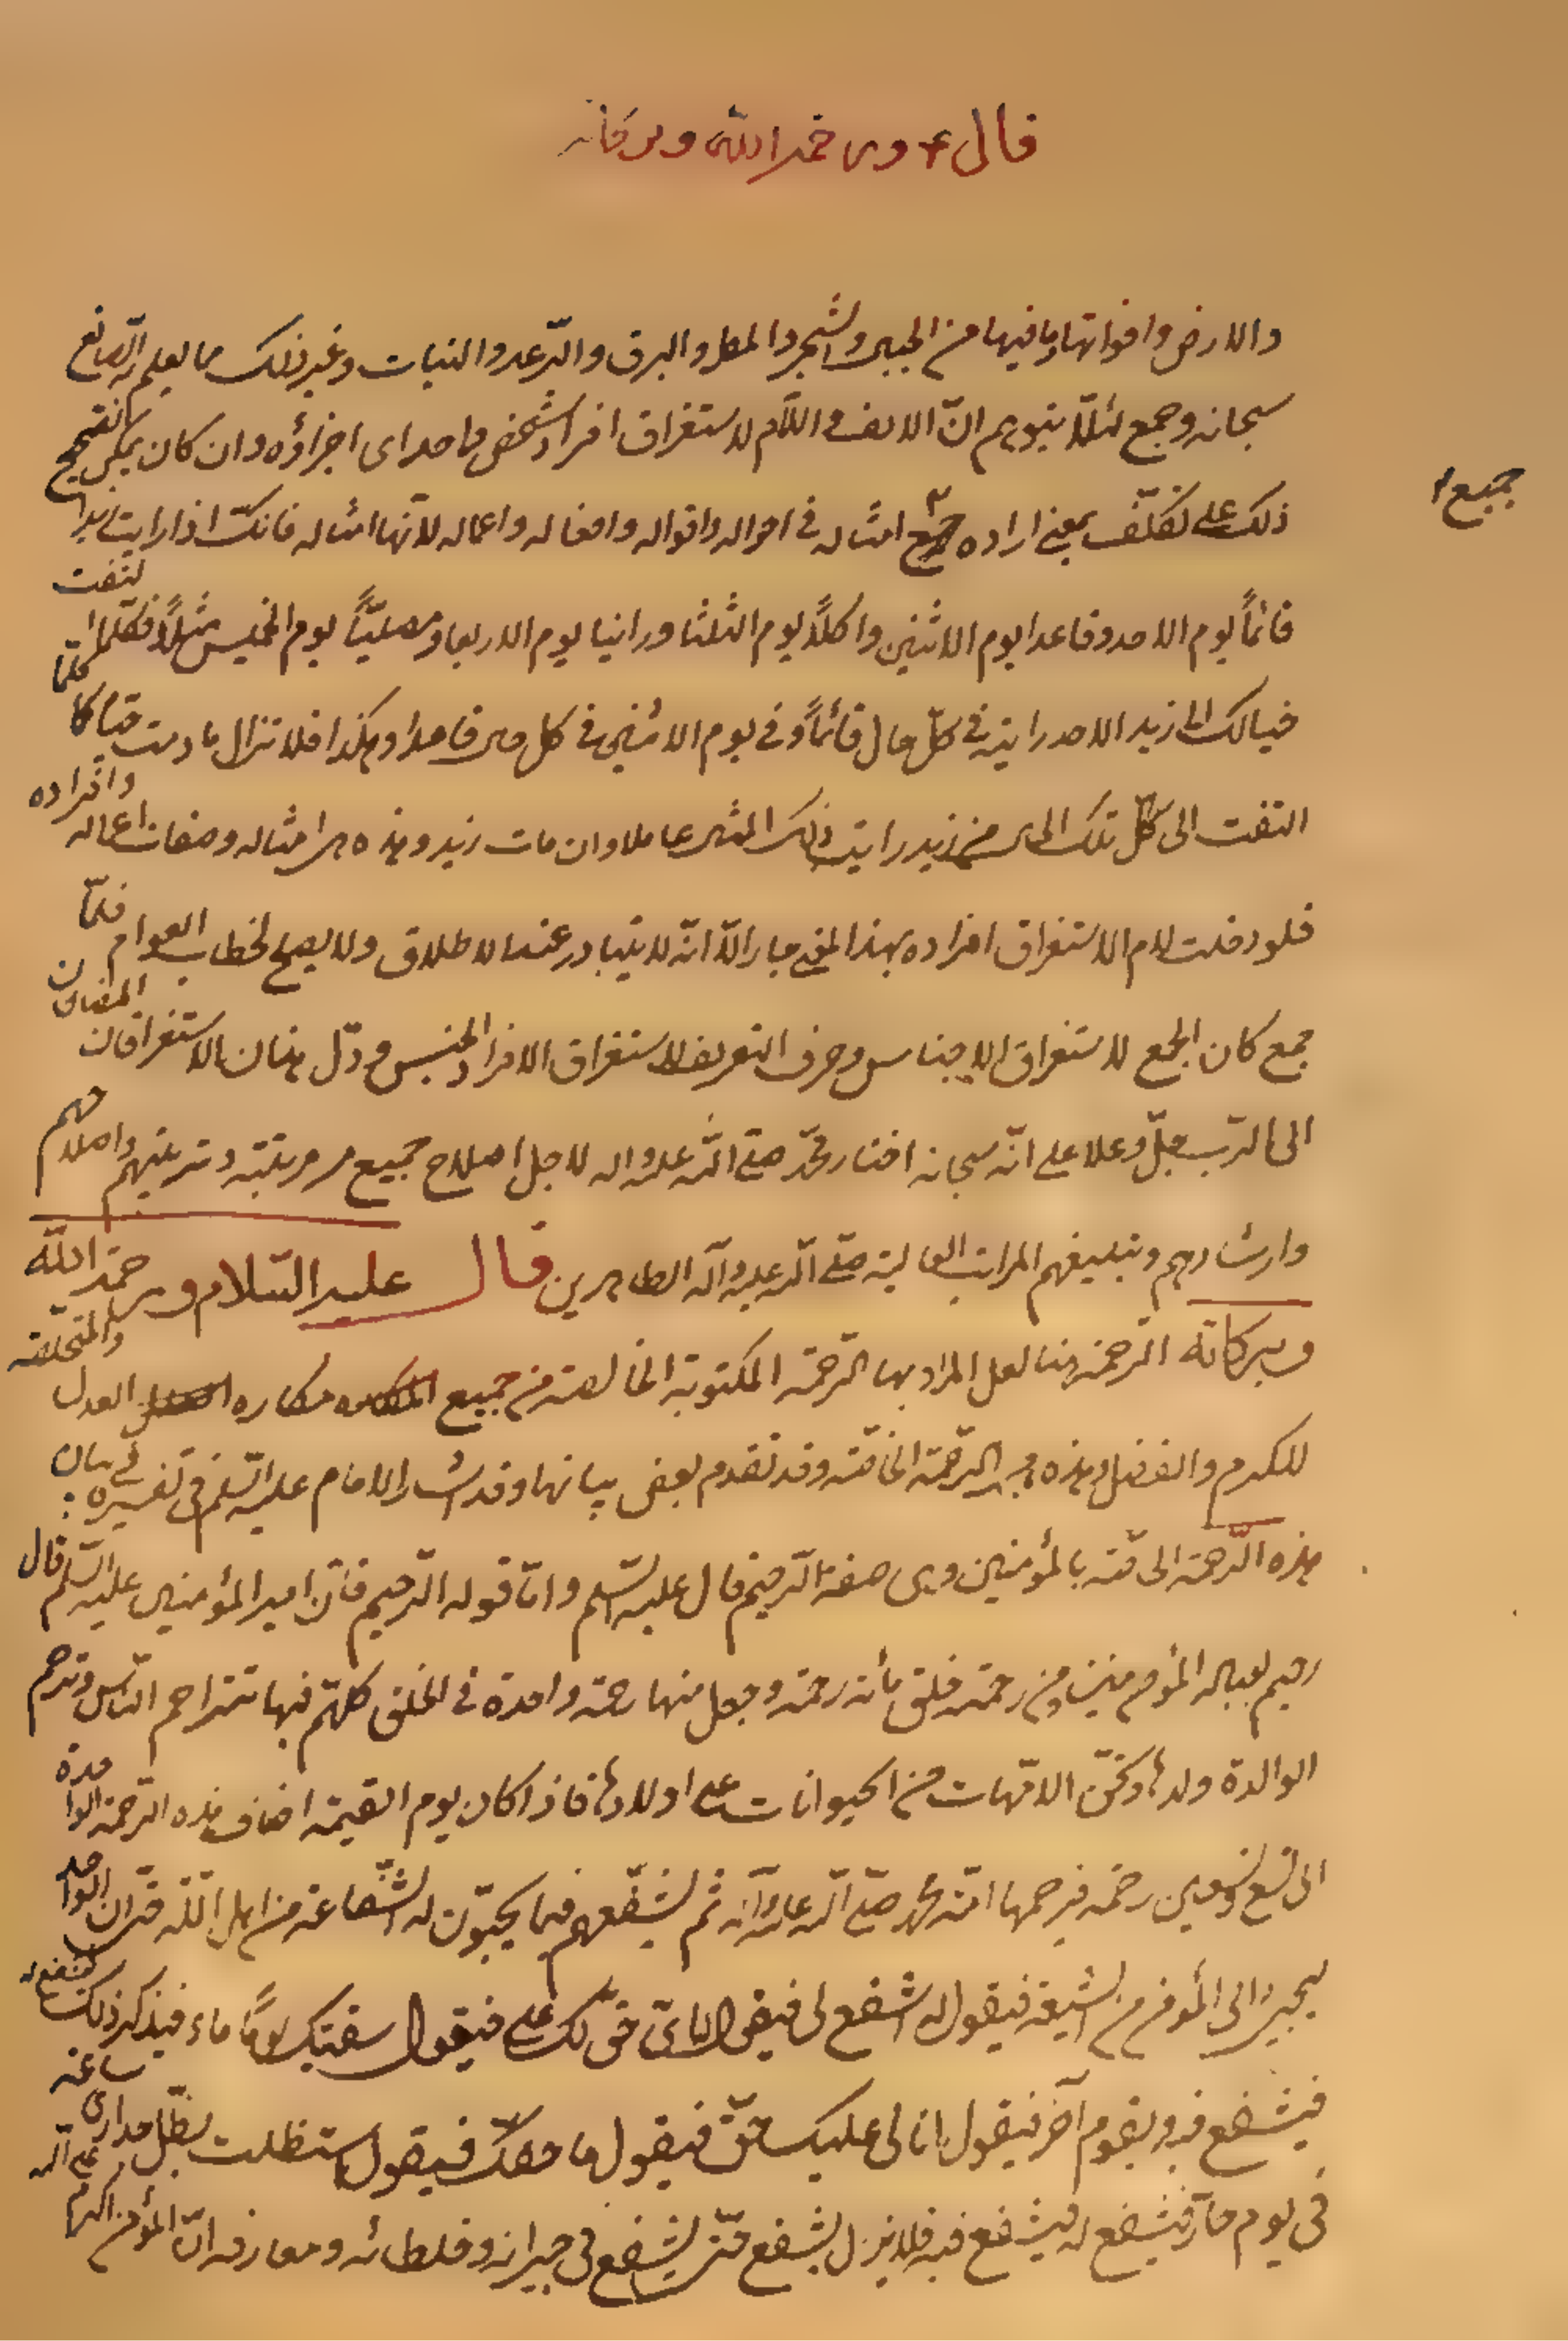 قال ع ورحمة الله وبركاته
والارض واقواتها وما فيها من الجبال والشجر والمطر والبرق والرّعد والنبات وغير ذلك مما يعلمه الصّانع
سبحانه وجمع لئلّا يتوهم انّ الالف واللّام لاستغراق افراد شخص واحد اى اجزاؤه وان كان يمكن تصحيح
جميع
ذلك على تكلّف بمعنى اراده جميع امثاله فى احواله واقواله وافعاله واعماله لانّها امثاله فانك اذا رايت زيدا
قائماً يوم الاحد وقاعدا يوم الاثنين واكلاً يوم الثلثا ورانيا يوم الاربعا ومصليّاً يوم الخميس مثلاً فكلّما التفت
خيالك الى زيد الاحد رايته فى كلّ حال قائماً وفى يوم الاثنين فى كل حين قاعدا وهكذا فلا تزال ما دمت حيّا كلّما
التفت الى كلّ تلك الحال من زيد رايت ذلك المثال عاملا وان مات زيد وهذه هى امثاله وصفات اعماله وافراده
فلو دخلت لام الاستغراق افراده بهذا المعنى جاز الّا انّه لا يتبادر عند الاطلاق ولا يصلح لخطاب العوام فلمّا
جمع كان الجمع لاستغراق الاجناس وحرف التعريف لاستغراق الافراد الجنس ودّل هذان الاستغراقان المضافان
الى الرّب جلّ وعلا على انّه سبحانه اختار محمّد صلى الله عليه واله لاجل اصلاح جميع مربوبيته وتربيتهم واصلاحهم
وارشادهم وتبليغهم المراتب العالية صلّى الله عليه وآله الطاهرين قال عليه السّلام ورحمة الله
وبركاته الرّحمة هنا لعل المراد بها الرّحمة المكتوبة الخالصة من جميع مكاره العدل والمتحلّصة
للكرم والفضل وهذه هى الرّحمة الخاصّة وقد تقدم بعض بيانها وقد اشار الامام عليه السّلم فى تفسيره فى بيان
هذه الرّحمة الخاصّة بالمؤمنين وهى صفة الرّحيم قال عليه السّلم وامّا قوله الرّحيم فانّ امير المؤمنين عليه السّلم قال
رحيم بعباده المؤمنين ومن رحمته خلق مأئة رحمة وجعل منها رحمة واحدة فى الخلق كلّهم فبها تتراحم النّاس وترحم
الوالدة ولدها وتحنّ الامّهات من الحيوانات على اولادها فاذا كان يوم القيمة اضاف هذه الرّحمة الواحدة
الى تسع وتسعين رحمة فيرحم بها امّة محمد صلّى الله عليه وآله ثم يشفّعهم فيما يحبّون له الشّفاعة من اهل الملّة حتّى ان الواحد
ليجئ الى المؤمن من الشيعة فيقول له اشفع لى فيقول له اىّ حقّ لك علىّ فيقول سقيتك يوماً ماء فيذكر ذلك فيشفع له
فيشفع فيه ويقوم آخر فيقول انا لى عليك حقّ فيقول ما حقك فيقول استظلت بظلّ جدارى ساعة
فى يوم حارّ فيشفع له فيشفع فيه فلا يزال يشفع حتّى يشفع فى جيرانه وخلطائه ومعارفه انّ المؤمن اكرم على الله